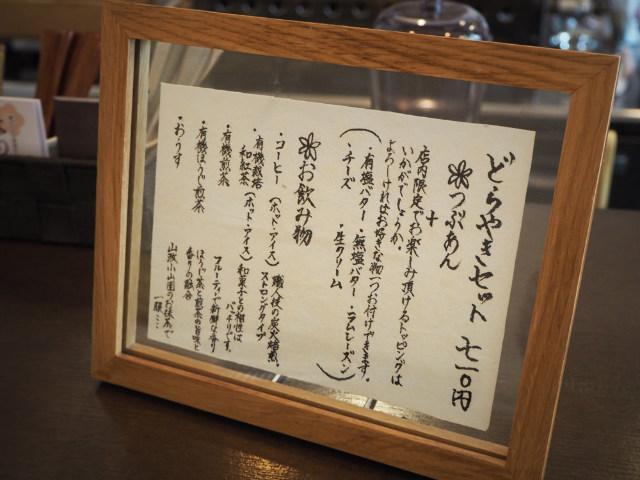 どらやきセット 七一〇円
つぶあん
＋
店内限定でお楽しみ頂けるトッピングは
いかがでしょうか。
よろしければお好きな物一つお付けできます。
（・有塩バター ・無塩バター ・ラムレーズン
・チーズ ・生クリーム ）
お飲み物
・コーヒー （ホット・アイス） 職人技の炭火焙煎。
ストロングタイプ
・有機栽培
和紅茶 （ホット・アイス） 和菓子との相性は
バッチリです。
・有機煎茶 フルーティーで新鮮な香り
・有機ほうじ煎茶 ほうじ茶と煎茶の旨味と
香りの融合
・おうす 山政小山園のお抹茶で